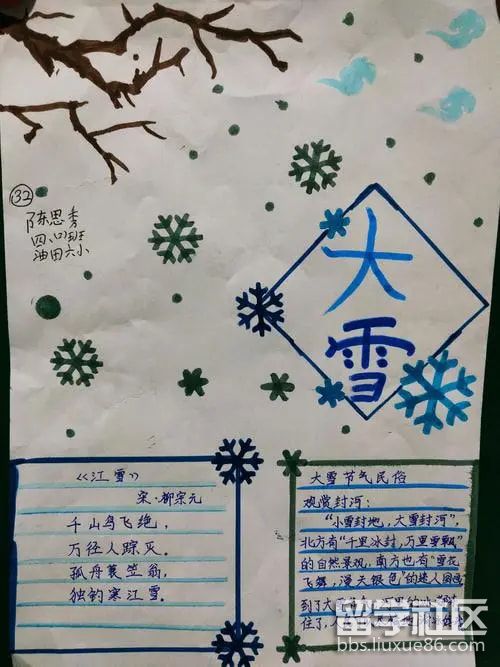 32
陈思秀
四、(2)班
油田六小
大
雪
《江雪》
宋·柳宗元
千山鸟飞绝，
万径人踪灭。
孤舟蓑笠翁，
独钓寒江雪。
大雪节气民俗
观赏封河：
“小雪封地，大雪封河”，
北方有“千里冰封，万里雪飘”
的自然景观，南方也有“雪花
飞舞，漫天银色”的迷人图画
到了大
住了，人
留学社区
bbs.liuxue86.com